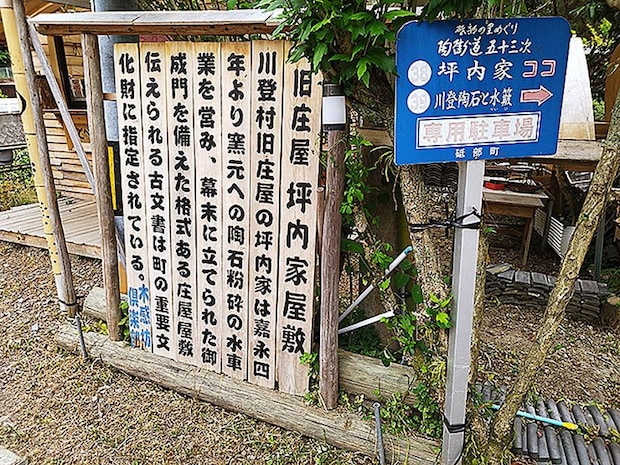 旧庄屋 坪内家屋敷
川登村旧庄屋の坪内家は嘉永四
年より窯元への陶石粉砕の水車
業を営み、幕末に立てられた御
成門を備えた格式ある庄屋屋敷
伝えられる古文書は町の重要文
化財に指定されている。
木感坊
倶楽部
砥部の里めぐり
陶街道五十三次
38 坪内家 ココ
39 川登陶石と水簸
専用駐車場
砥部町